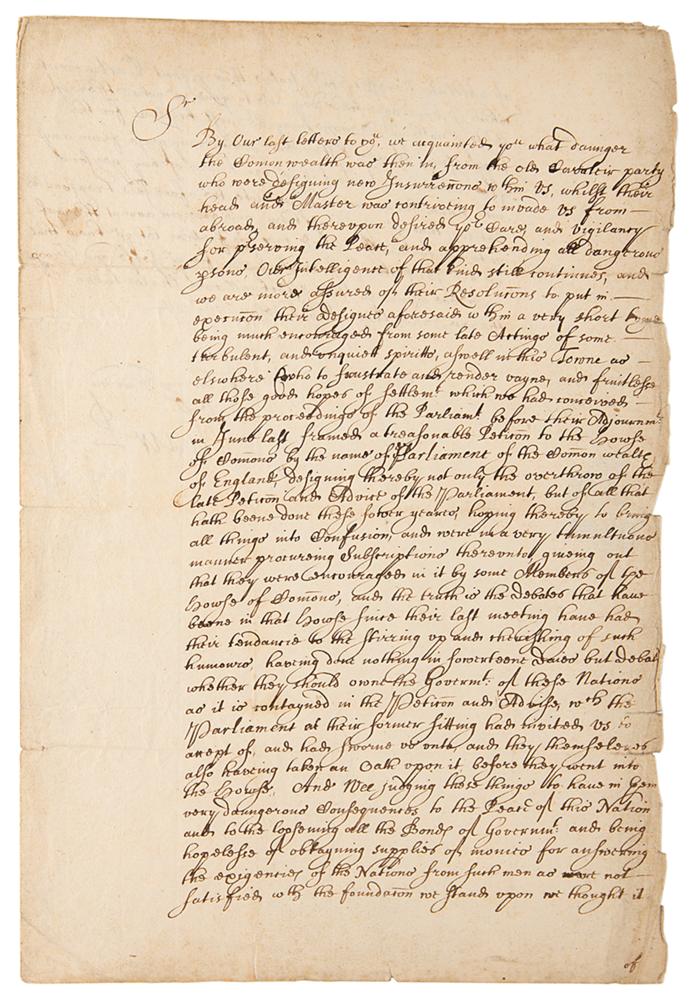 Sr
By Our last letters to you, we acquainted you what daunger
the Comonwealth was then in, from the old Cavaleir party
who were designing new Insurreccons wthin us, whilst their
head and Master was contriveing to invade us from
abroad, and thereupon desired yor Care, and vigilancy
for pserving the Peace, and apprehending all dangerous
psons. Our Intelligence of that kind still continues, and
we are more assured of their Resolucons to put in
execucon their designes aforesaid wthin a very short
being much encouraged from some late Actings of some
turbulent, and unquiett spiritts, aswell in this Towne as
elsewhere who to frustrate and render vayne, and fruitlesse
all those good hopes of settlemt which we had conceived
from the proceedings of the Parliamt before their Adjournmt
in June last framed a treasonable Peticon to the Howse
of Comons by the name of Parliament of the Comon wealth
of England, designing thereby not only the overthrow of the
late Peticon and Advice of the Parliament, but of all that
hath beene done these seven yeares, hoping thereby to bring
all things into Confusion, and were in a very tumultuous
manner procureing Subscriptions thereunto giveing out
that they were encouraged in it by some Members of the
Howse of Comons, and the truth is the debates that have
beene in that Howse since their last meeting have had
their tendancie to the stirring up and cherishing of such
humours having done nothing in fowerteene daies but debate
whether they should owne the Governmt of these Nations
as it is contayned in the Peticon and Advise, wch the
Parliament at their former sitting had invited us to
accept of, and had sworne us unto and they themselves
also haveing taken an Oath upon it before they went into
the Howse. And Wee judging these things to have in them
very daungerous Consequences to the Peace of this Nation
and to the loosening all the Bonds of Governmt and being
hopelesse of obtayning supplies of monies for answering
the exigencies of the Nations from such men as were not
satisfied wth the foundacon we stand upon we thought it
of